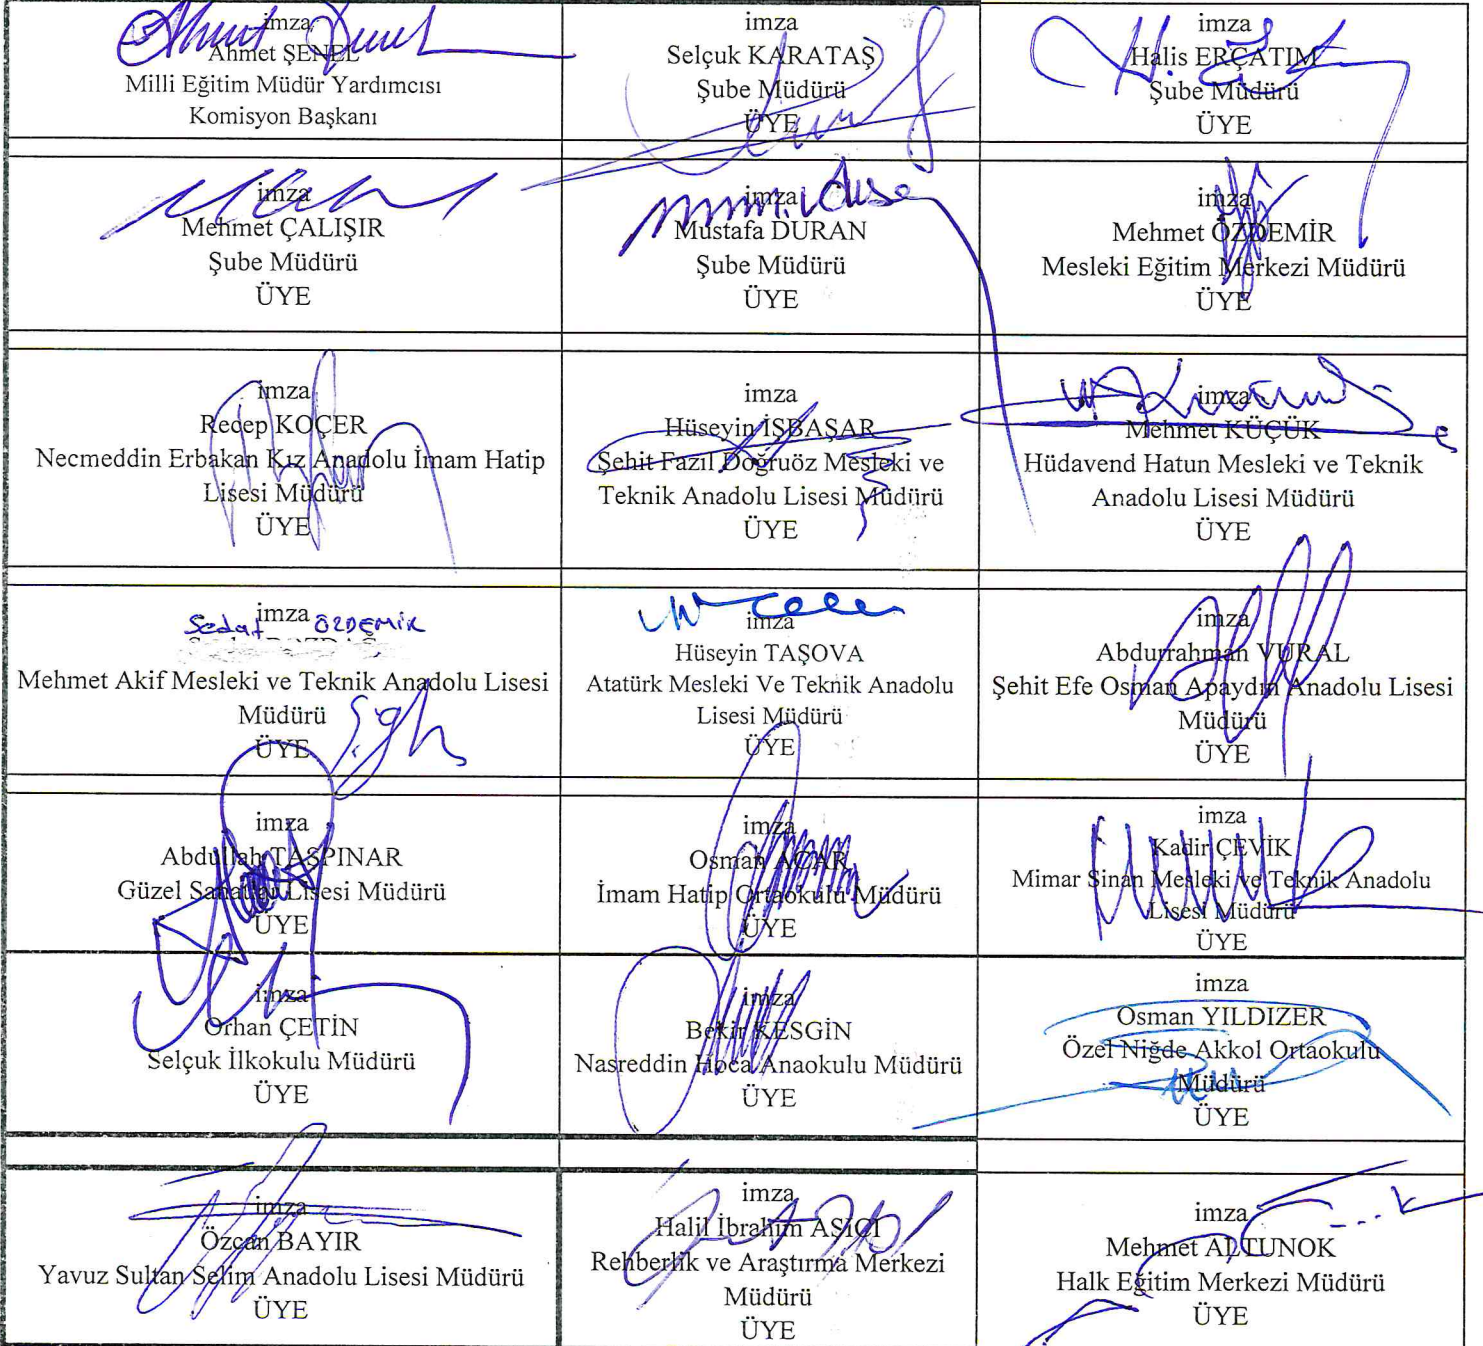 imza
Ahmet ŞENEL
Milli Eğitim Müdür Yardımcısı
Komisyon Başkanı
imza
Selçuk KARATAŞ
Şube Müdürü
ÜYE
imza
Halis ERÇATIM
Şube Müdürü
ÜYE
imza
Mehmet ÇALIŞIR
Şube Müdürü
ÜYE
imza
Mustafa DURAN
Şube Müdürü
ÜYE
imza
Mehmet ÖZDEMİR
Mesleki Eğitim Merkezi Müdürü
ÜYE
imza
Recep KOÇER
Necmeddin Erbakan Kız Anadolu İmam Hatip
Lisesi Müdürü
ÜYE
imza
Hüseyin İŞBAŞAR
Şehit Fazıl Doğruöz Mesleki ve
Teknik Anadolu Lisesi Müdürü
ÜYE
imza
Mehmet KÜÇÜK
Hüdavend Hatun Mesleki ve Teknik
Anadolu Lisesi Müdürü
ÜYE
imza
Sedat ÖZDEMİR
Mehmet Akif Mesleki ve Teknik Anadolu Lisesi
Müdürü
ÜYE
imza
Hüseyin TAŞOVA
Atatürk Mesleki Ve Teknik Anadolu
Lisesi Müdürü
ÜYE
imza
Abdurrahman VURAL
Şehit Efe Osman Apaydın Anadolu Lisesi
Müdürü
ÜYE
imza
Abdullah TAŞPINAR
Güzel Sanatlar Lisesi Müdürü
ÜYE
imza
Osman ACAR
İmam Hatip Ortaokulu Müdürü
ÜYE
imza
Kadir ÇEVİK
Mimar Sinan Mesleki ve Teknik Anadolu
Lisesi Müdürü
ÜYE
imza
Orhan ÇETİN
Selçuk İlkokulu Müdürü
ÜYE
imza
Bekir KESGİN
Nasreddin Hoca Anaokulu Müdürü
ÜYE
imza
Osman YILDIZER
Özel Niğde Akkol Ortaokulu
Müdürü
ÜYE
imza
Özcan BAYIR
Yavuz Sultan Selim Anadolu Lisesi Müdürü
ÜYE
imza
Halil İbrahim AŞICI
Rehberlik ve Araştırma Merkezi
Müdürü
ÜYE
imza
Mehmet ALTUNOK
Halk Eğitim Merkezi Müdürü
ÜYE